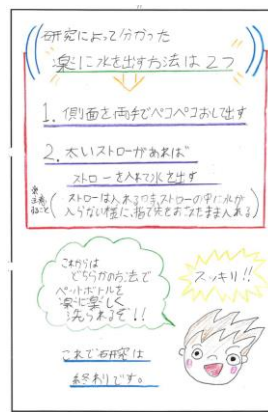 研究によって分かった
楽に水を出す方法は2つ
1. 側面を両手でペコペコおして出す
2. 太いストローがあれば
ストローを入れて水を出す
ストローは入れる時ストローの中に水が
入らない様に、指で先をおさえたまま入れる
これからは
どちらかの方法で
ペットボトルを
楽に楽しく
洗られるぞ!!
スッキリ!!
これで研究は
終わりです。